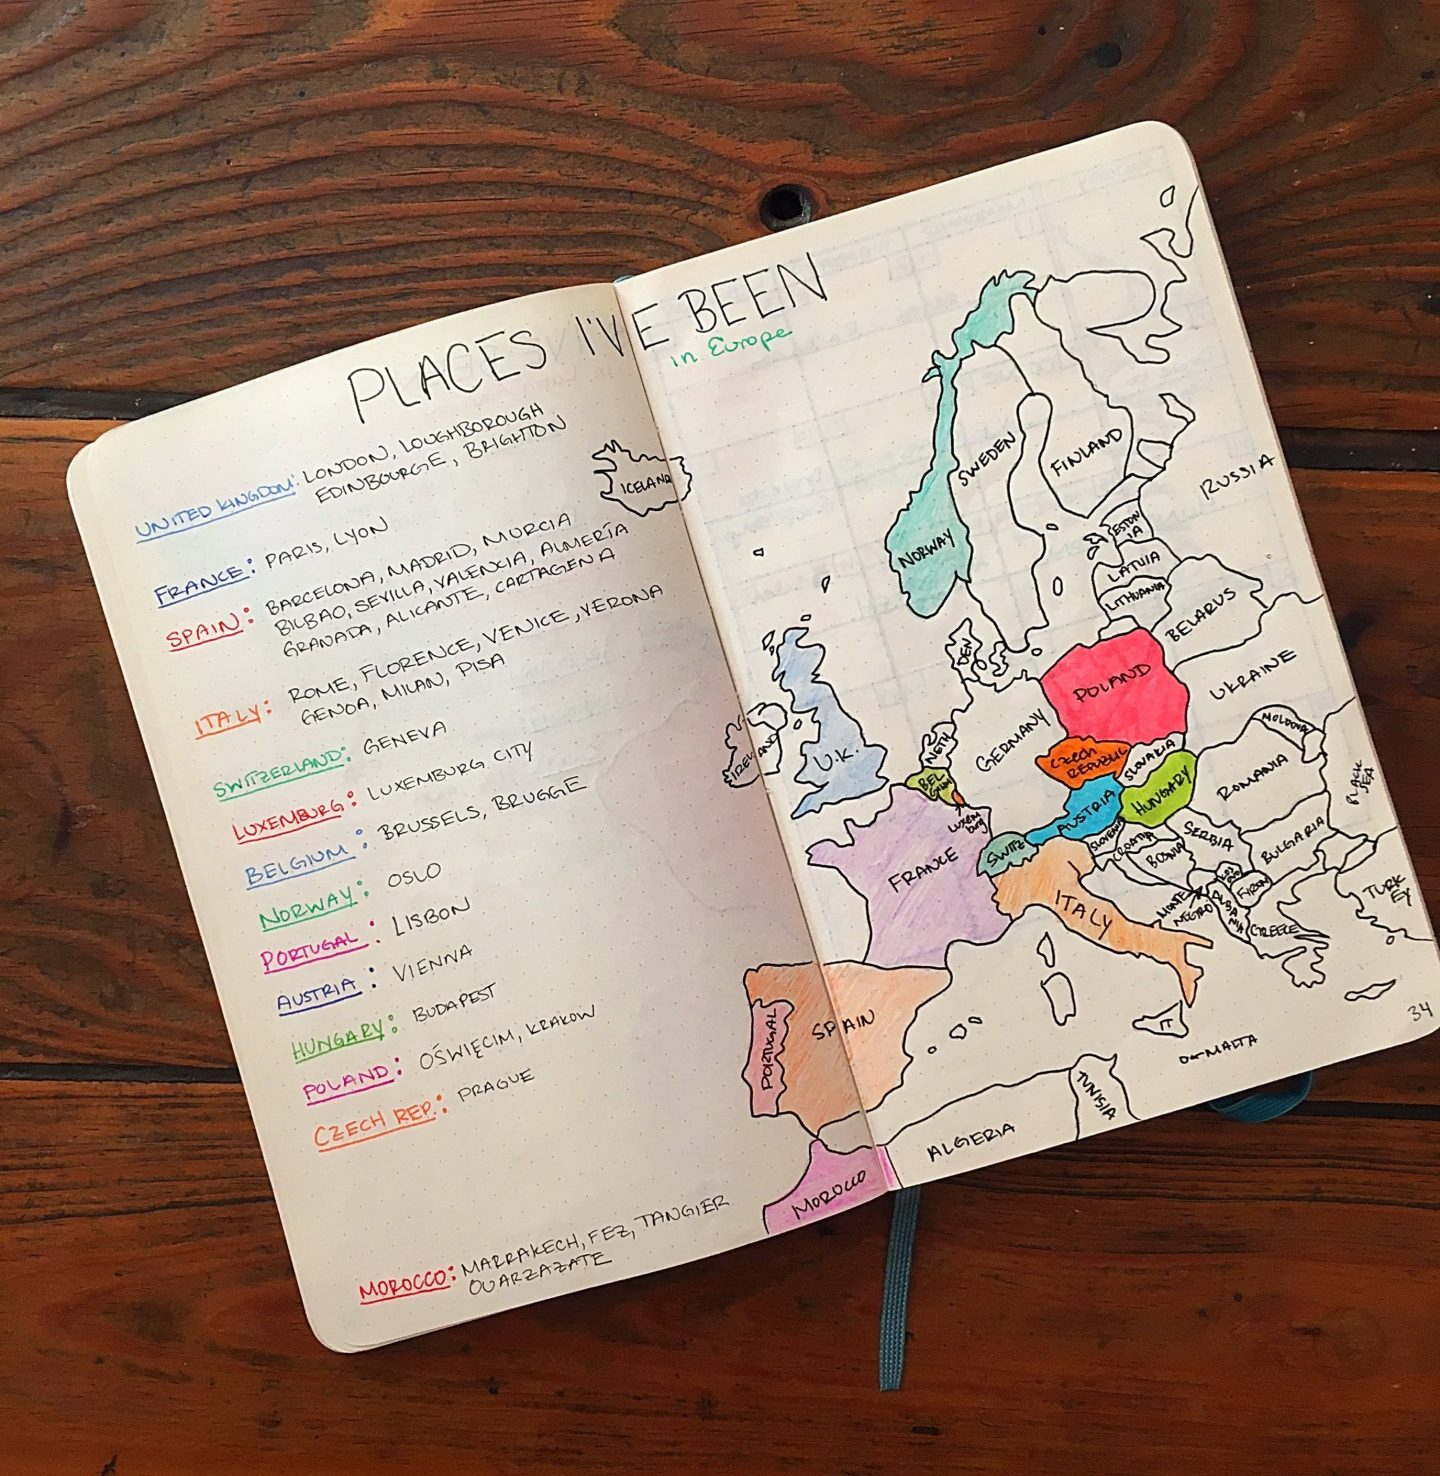 PLACES I'VE BEEN
in Europe
UNITED KINGDOM: LONDON, LOUGHBOROUGH
EDINBOURGE, BRIGHTON
FRANCE: PARIS, LYON
SPAIN: BARCELONA, MADRID, MURCIA
BILBAO, SEVILLA, VALENCIA, ALMERÍA
GRANADA, ALICANTE, CARTAGENA
ITALY: ROME, FLORENCE, VENICE, VERONA
GENOA, MILAN, PISA
SWITZERLAND: GENEVA
LUXEMBURG: LUXEMBURG CITY
BELGIUM: BRUSSELS, BRUGGE
NORWAY: OSLO
PORTUGAL: LISBON
AUSTRIA: VIENNA
HUNGARY: BUDAPEST
POLAND: OŚWIĘCIM, KRAKOW
CZECH REP: PRAGUE
MOROCCO: MARRAKECH, FEZ, TANGIER
OUARZAZATE
ICELAND
NORWAY
SWEDEN
FINLAND
RUSSIA
ESTON
IA
LATVIA
LITHUANIA
BELARUS
DEN
POLAND
UKRAINE
IRELAND
U.K.
NETH
GERMANY
CZECH
REPUBLIC
SLOVAKIA
MOLDOVA
BEL
GIUM
LUXEM
BURG
AUSTRIA
HUNGARY
ROMANIA
BLACK
SEA
FRANCE
SWITZ
SLOVENIA
CROATIA
BOSNIA
SERBIA
BULGARIA
ITALY
MONTE
NEGRO
KOS
OVO
FYROM
ALBA
NIA
GREECE
TURK
EY
PORTUGAL
SPAIN
IT
MALTA
TUNISIA
ALGERIA
MOROCCO
34